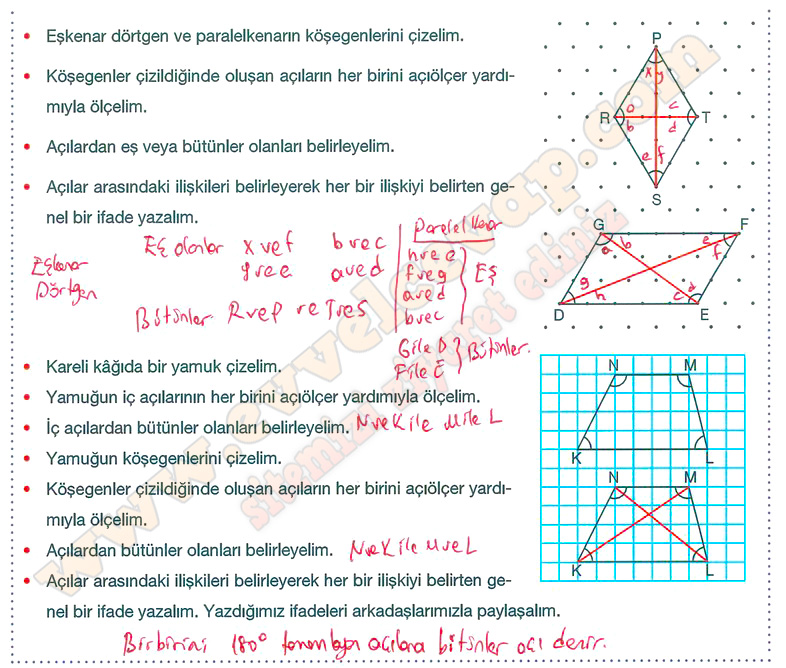 Eşkenar dörtgen ve paralelkenarın köşegenlerini çizelim.
Köşegenler çizildiğinde oluşan açıların her birini açıölçer yardı-
mıyla ölçelim.
Açılardan eş veya bütünler olanları belirleyelim.
Açılar arasındaki ilişkileri belirleyerek her bir ilişkiyi belirten ge-
nel bir ifade yazalım.
P
x y
R a c T
b d
e f
S
Eşkenar
Dörtgen
Eş olanlar x ve f b ve c
y ve e a ve d
Bütünler R ve P ve T ve S
Paralel kenar
h ve e
f ve g
a ve d
b ve c
Eş
G ile D
F ile E
Bütünler.
G F
a b e f
g h c d
D E
Kareli kâğıda bir yamuk çizelim.
Yamuğun iç açılarının her birini açıölçer yardımıyla ölçelim.
İç açılardan bütünler olanları belirleyelim. N ve K ile M ile L
Yamuğun köşegenlerini çizelim.
Köşegenler çizildiğinde oluşan açıların her birini açıölçer yardı-
mıyla ölçelim.
Açılardan bütünler olanları belirleyelim. N ve K ile M ve L
Açılar arasındaki ilişkileri belirleyerek her bir ilişkiyi belirten ge-
nel bir ifade yazalım. Yazdığımız ifadeleri arkadaşlarımızla paylaşalım.
Birbirini 180° tamamlayan açılara bütünler açı denir.
N M
K L
N M
K L
www.evvelcevap.com
sitemizi ziyaret ediniz